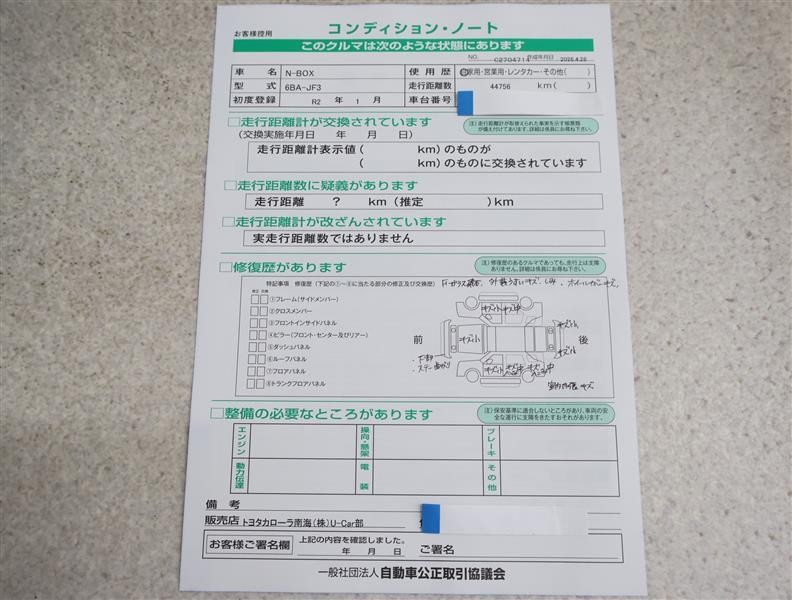 お客様控用
コンディション・ノート
このクルマは次のような状態にあります
NO. C2704714 作成年月日 2025.4.26
車名 N-BOX 使用歴 自家用・営業用・レンタカー・その他( )
型式 6BA-JF3 走行距離数 44756 km( )
初度登録 R2 年 1 月 車台番号
□走行距離計が交換されています
(交換実施年月日 年 月 日)
注)走行距離計が取替えられた事実を示す帳票類
が備え付けてあります。詳細は係員にお尋ね下さい。
走行距離計表示値( km)のものが
( km)のものに交換されています
□走行距離数に疑義があります
走行距離 ? km(推定 )km
□走行距離計が改ざんされています
実走行距離数ではありません
□修復歴があります
注)修復歴のあるクルマであっても、走行上は支障
ありません。詳細は係員にお尋ね下さい。
特記事項 修復歴(下記の①~⑧に当たる部分の修正及び交換歴)
修正 交換
①フレーム(サイドメンバー)
②クロスメンバー
③フロントインサイドパネル
④ピラー(フロント・センター及びリアー)
⑤ダッシュパネル
⑥ルーフパネル
⑦フロアパネル
⑧トランクフロアパネル
前 後
キズ小
・下部
キズ小
キズ小
□整備の必要なところがあります
注)保安基準に適合しないところがあり、車両の安
全な運行に支障をきたすおそれがあります。
エンジン 操向・懸架 ブレーキ
動力伝達 電装 その他
備考
販売店 トヨタカローラ南海(株)U-Car部
お客様ご署名欄 上記の内容を確認しました。
年 月 日 ご署名
一般社団法人 自動車公正取引協議会